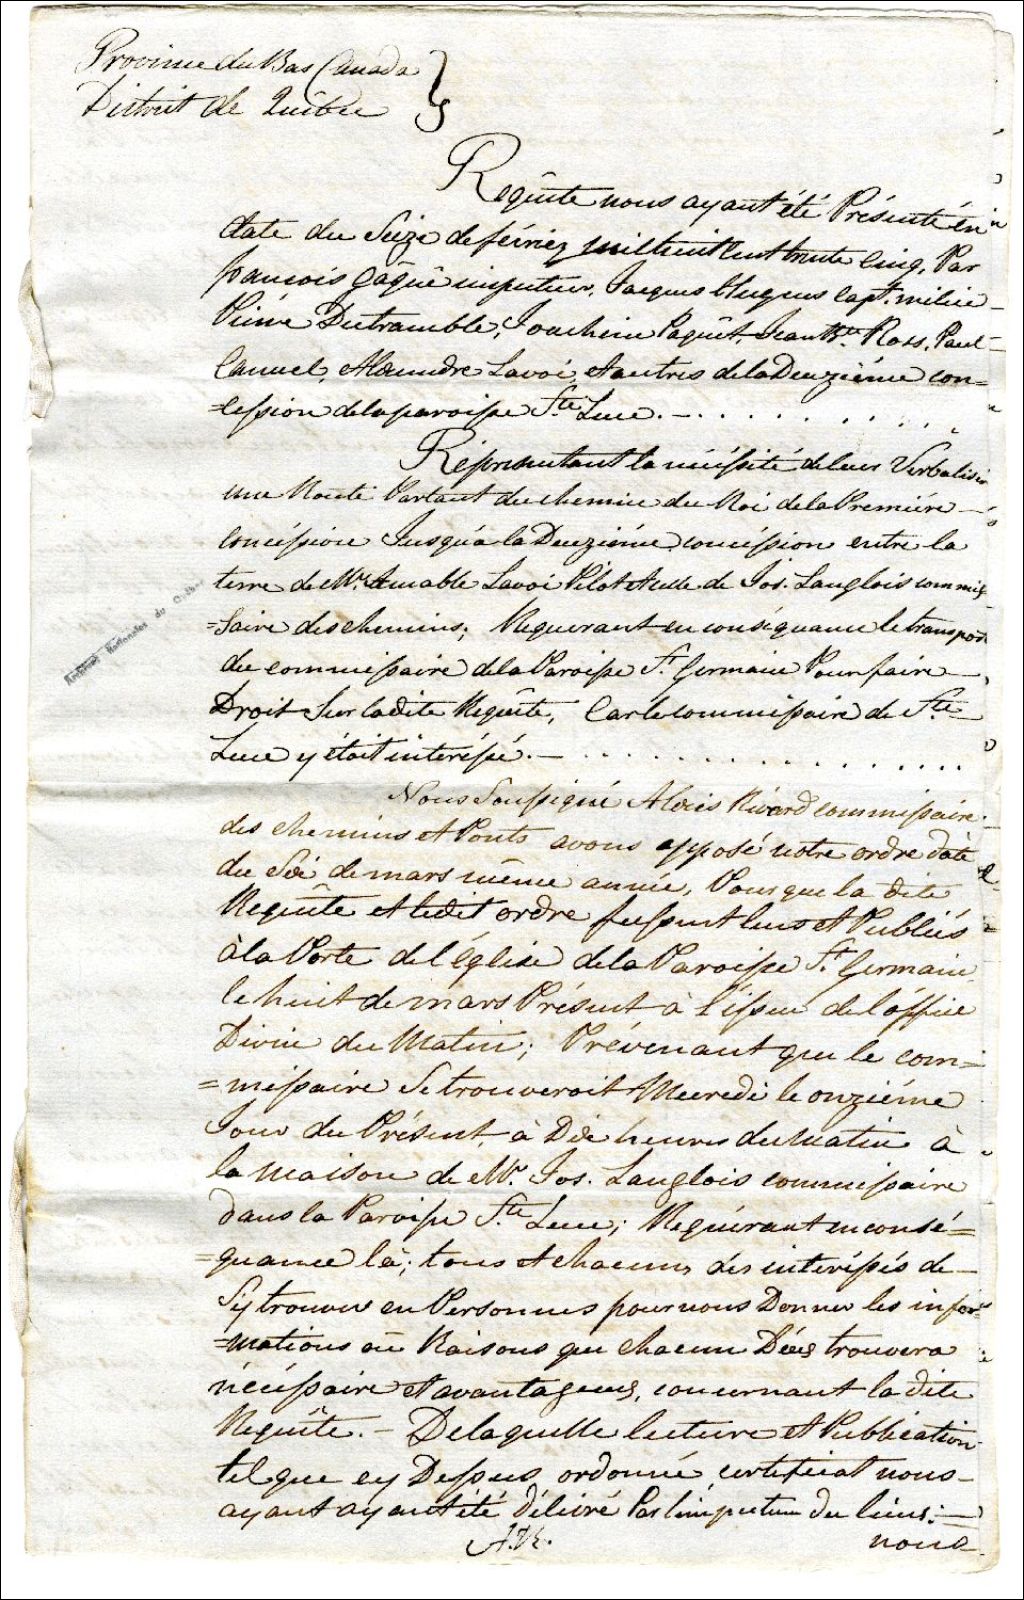 Province du Bas Canada }
District de Québec }
Requête nous ayant été Présenté én
date du Seize de février mil huit cent trente cinq, Par
françois Gâgné inspecteur, Jacques Hugues capt. milice
Pierre Ducramble, Jouchim Paquêt, Jean Bte. Ross, Paul
Canuel, Alexandre Lavoi, et autres de la Deuziéme con=
=cession de la paroisse Ste. Luce. – . . . . . . . .
Réprésentant la nécéssité de leur Verbaliser
une Route Partant du chemin du Roi de la Premiére –
Concéssion Jusqu'à la Deuziéme concéssion entre la
terre de Mr. Amable Lavoi Pilot et celle de Jos. Langlois commis
=saire des chemins; Requerant en conséquance le transport
du commissaire de la Paroisse St. Germain Pour faire –
Droit sur la dite Requête, Car le commissaire de Ste.
Luce y étoit interéssé. – . . . . . . . . . . . .
Nous Soussigné Alexis Rivard commissaire
des chemins et Ponts avons apposé notre ordre daté
du Six de mars même année, Pour que la dite
Requête et ledit ordre fussent lus et Publiés
à la Porte de l'église de la Paroisse St. Germain
le huit de mars Présent à l'issue de l'office
Divin du Matin; Prévenant que le com=
=missaire se trouveroit Mecredi le onziéme
Jour du Présent, à Dix heures du matin à
la maison de Mr. Jos. Langlois commissaire
dans la Paroisse Ste. Luce; Requérant en consé=
=quance là; tous et chacuns des interéssés de –
S'y trouver en Personnes pour nous Donner les infor
=mations où Raisons que chacun D'eux trouvera
nécéssaire et avantageux, concernant la dite
Requête. – De laquelle lecture et Publication
tel que cy Dessus ordonné certificat nous
ayant ayant été délivré Par l'inspecteur du lieu: –
A.R. nous